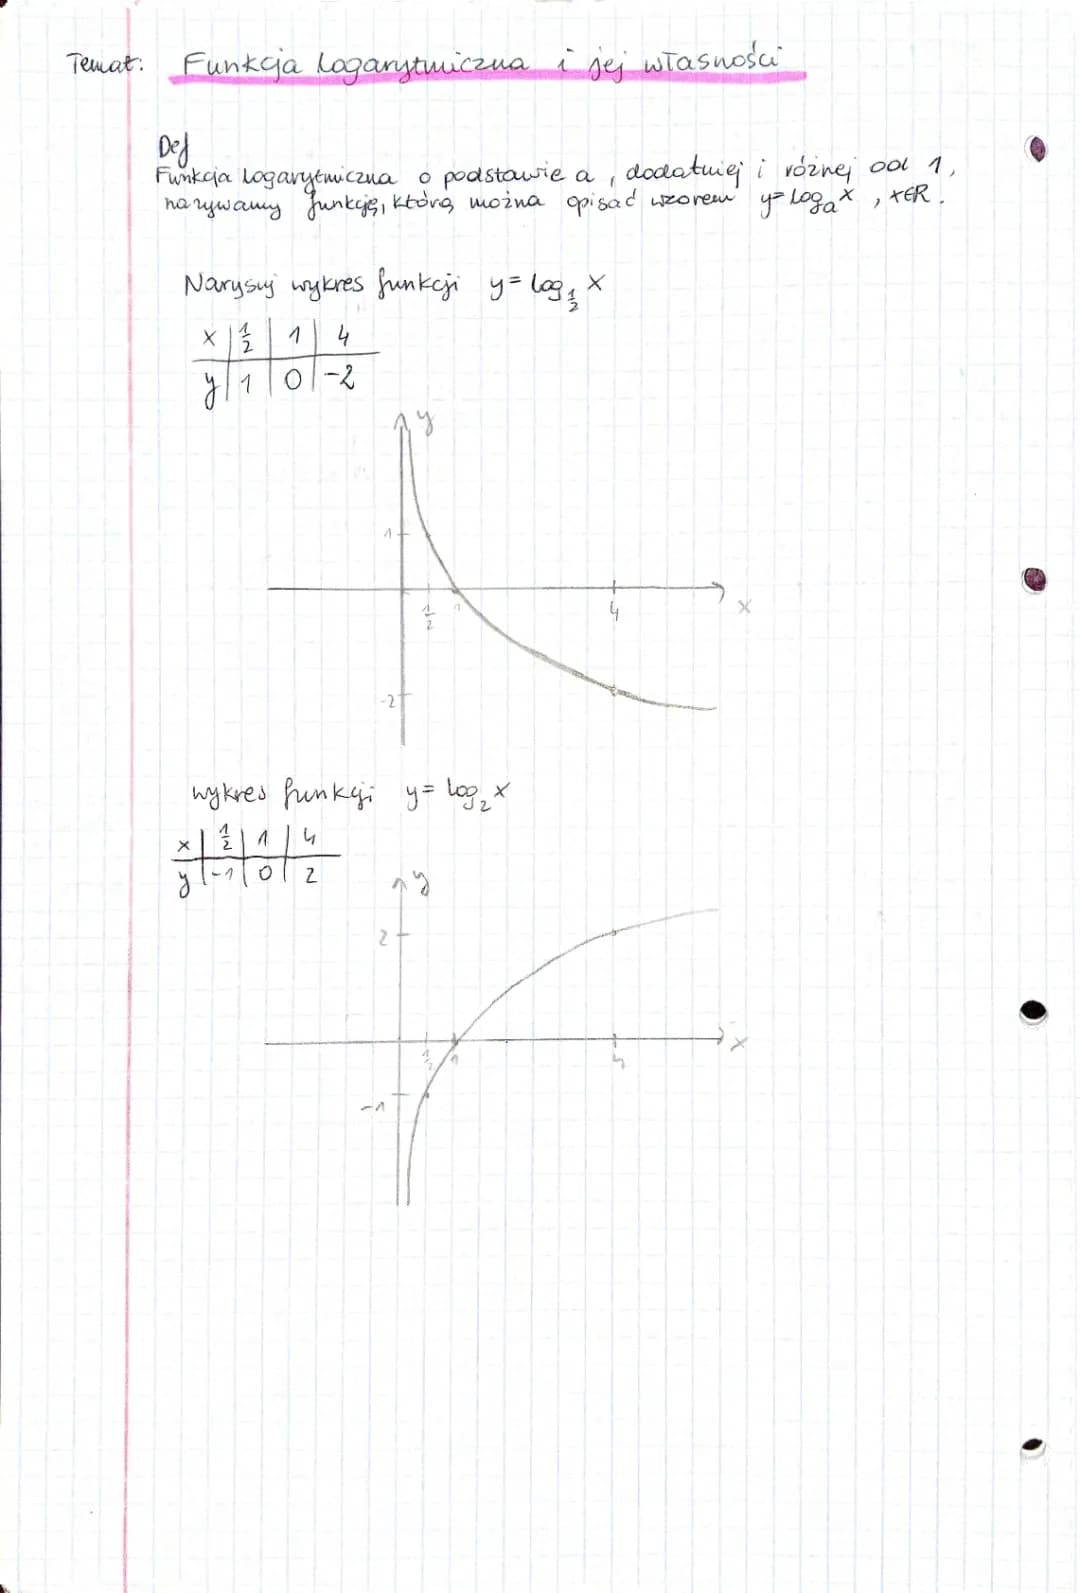 Temat: Funkcja logarytmiczna i jej własności
Def
Funkcja logarytmiczna o podstawie a, dodatniej i różnej od 1,
nazywamy funkcję, którą można opisać wzorem y=logₐx, x∈R.
Narysuj wykres funkcji y= log_{1/2} x
x | 1/2 | 1 | 4
y | 1 | 0 | -2
y
1
1/2 1 4 x
-2
wykres funkcji y= log₂x
x | 1/2 | 1 | 4
y | -1 | 0 | 2
y
2
1/2 1 4 x
-1